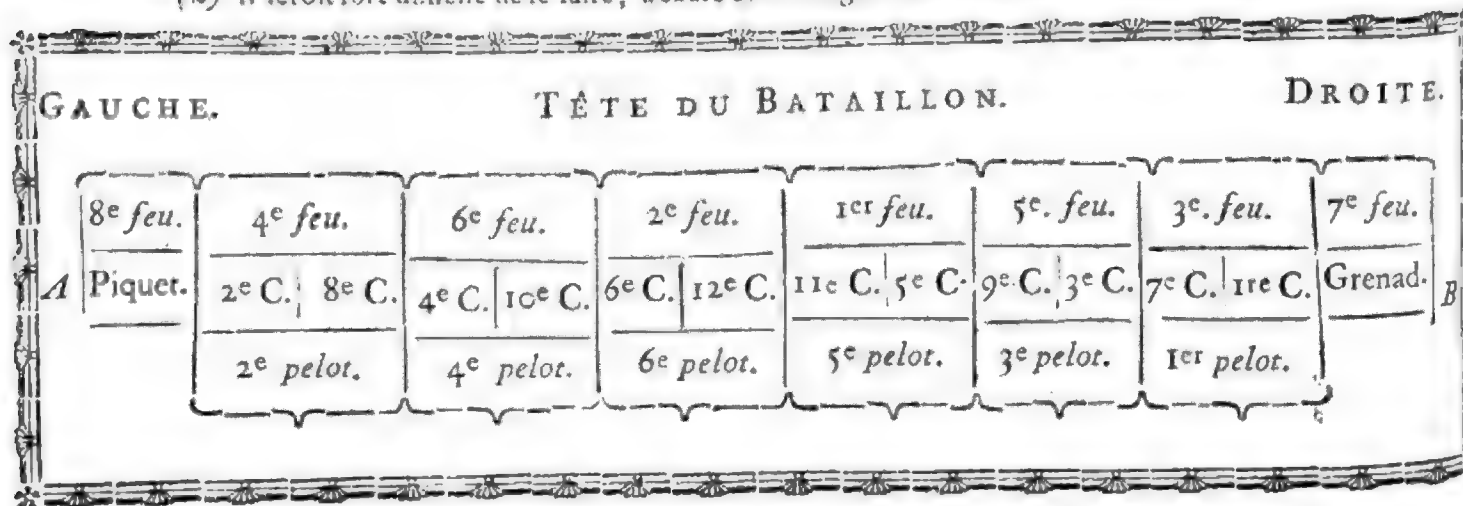 GAUCHE. TÊTE DU BATAILLON. DROITE.
8e feu. 4e feu. 6e feu. 2e feu. 1er feu. 5e. feu. 3e. feu. 7e feu.
A Piquet. 2e C. 8e C. 4e C. 10e C. 6e C. 12e C. 11e C. 5e C. 9e C. 3e C. 7e C. 1re C. Grenad. B
2e pelot. 4e pelot. 6e pelot. 5e pelot. 3e pelot. 1er pelot.